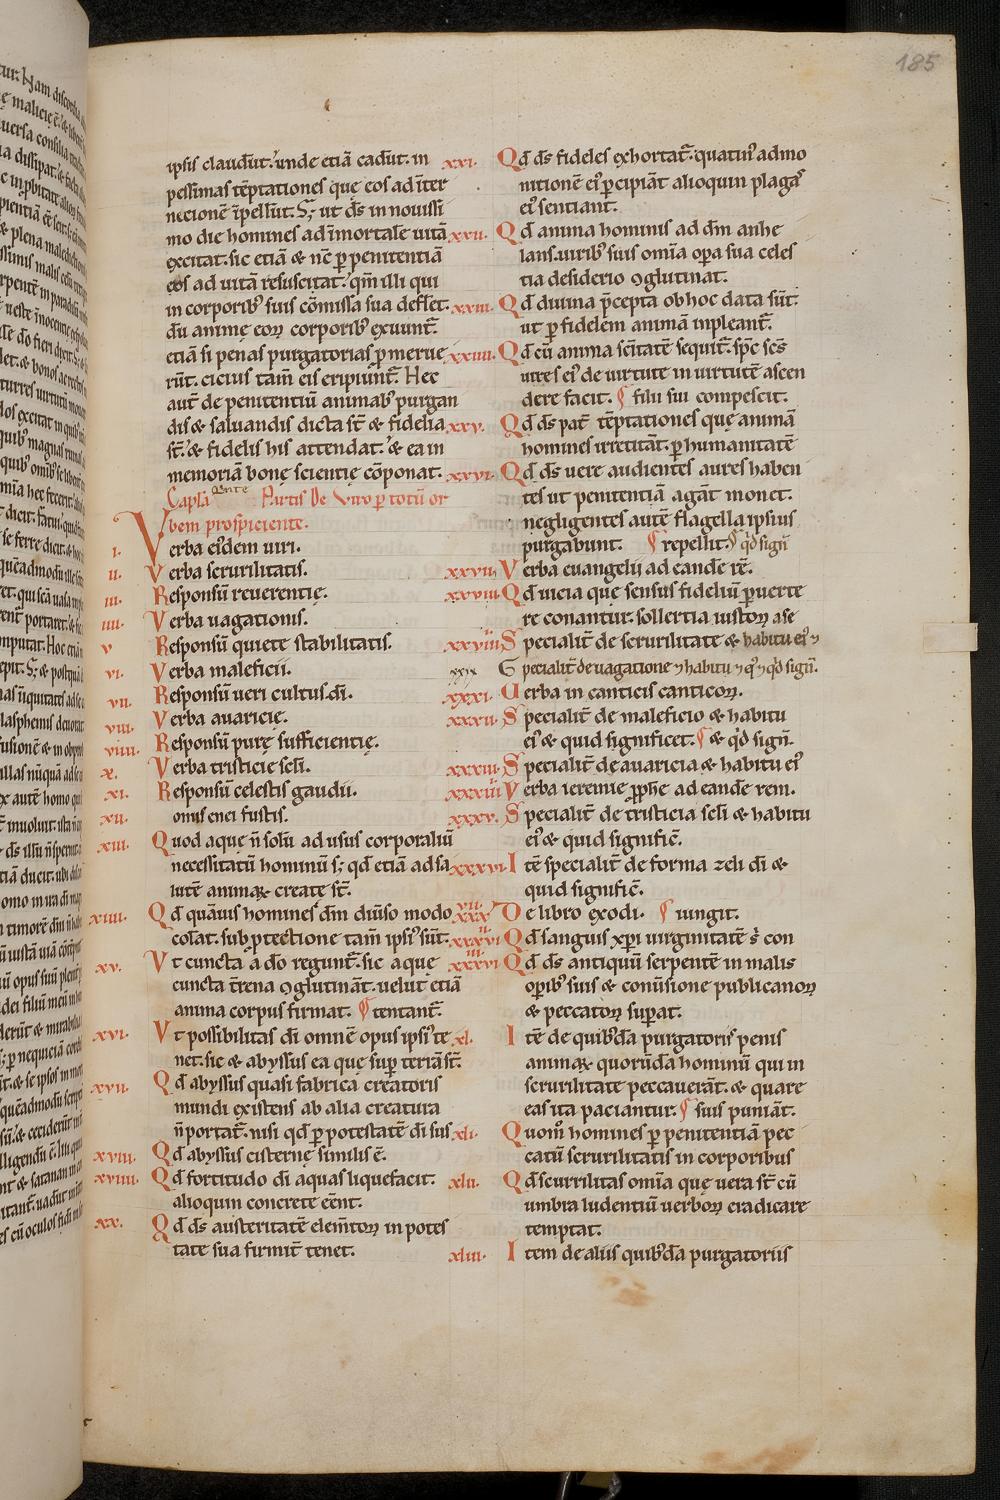 185
ipsis claudūt. unde etiā cadūt. in
pessimas tēptationes que eos ad īter
necionē īpellūt. S; ut ds in nouissi
mo die homines ad īmortalē uitā
excitat. sic etiā & nc̄ p penitentiā
eos ad uitā resuscitat. qm̄ illi qui
in corporib; suis cōmissa sua deflet.
dū animę eoꝝ corporib; exuunt̄.
etiā si penas purgatorias pmerue
rūt. cicius tam̄ eis eripiūnt̄. Hec
aut̄ de penitentiū animab; purgan
dis & saluandis dicta st̄ & fidelia
st̄. & fidelis his attendat. & ea in
memoriā bonę scientię cōponat.
Capla Qinte Partis De Viro p totū or
bem prospiciente.
i. Verba eiꝰdem uiri.
ii. Verba scrurilitatis.
iii. Responsū reuerentię.
iiii. Verba uagationis.
v Responsū quietę stabilitatis.
vi. Verba maleficii.
vii. Responsū ueri cultus. di.
viii. Verba auaricię.
viiii. Responsū purę sufficientię.
x. Verba tristicię scli.
xi. Responsū celestis gaudii.
xii. omis enei fustis.
xiii. Quod aque n̄ solū ad usus corporaliū
necessitatū hominū s; qd etiā ad sa
lutē animaꝝ create st̄.
xiiii. Qd quāuis homines dm̄ diūso modo
colat. sub ptectione tam̄ ipsiꝰ sūt.
xv. Vt cuncta a dō regunt̄. sic aque
cuncta tr̄ena ꝯglutināt. uelut etiā
anima corpus firmat. ¶ tentant̄.
xvi. Vt possibilitas di omnē opus ipsiꝰ te
net. sic & abyssus ea que sup terrā st̄.
xvii. Qd abyssus quasi fabrica creatoris
mundi existens ab alia creatura
n̄ portat̄. nisi qd p potestatē di sus
xviii. Qd abyssus cisternę similis ē.
xviiii. Qd fortitudo di aquas liquefacit.
alioquin concrete cēnt.
xx. Qd ds austeritatē elem̄toꝝ in potes
tate sua firmit̄ tenet.
xxi. Qd ds fideles exhortat̄. quatinꝰ admo
nitionē eiꝰ pcipiāt alioquin plagaꝰ
eiꝰ sentiant.
xxii. Qd anima hominis ad dm̄ anhe
lans. uirib; suis omīa opa sua celes
tia desiderio ꝯglutinat.
xxiii. Qd diuina pcepta ob hoc data sūt.
ut p fidelem animā inpleant̄.
xxiiii. Qd cū anima scītatē sequit̄. spc scs
uires eiꝰ de uirtute in uirtutē ascen
dere facit. ¶ filii sui compescit.
xxv. Qd ds pat̄ tēptationes que animā
hominis irretitāt. p humanitatē
xxvi. Qd ds uere audientes aures haben
tes ut penitentiā agāt monet.
negligentes autē flagella ipsius
purgabunt. ¶ repellit. qd sign̄
xxvii. Verba euangelii ad eandē rē.
xxviii. Qd uicia que sensus fideliū puerte
re conantur. sollertia iustoꝝ ase
xxviiii. Specialit̄ de scrurilitate & habitu eiꝰ ⁊
xxix Specialit̄ de uagatione ⁊ habitu ⁊ qꝰ ⁊ qd sign̄.
xxxi. Uerba in canticis canticoꝝ.
xxxii. Specialit̄ de maleficio & habitu
eiꝰ & quid significet. ¶ & qd sign̄.
xxxiii. Specialit̄ de auaricia & habitu eiꝰ
xxxiiii Verba ieremię pphe ad eandē rem.
xxxv. Specialit̄ de tristicia scli & habitu
eiꝰ & quid signific̄.
xxxvi. Itē specialit̄ de forma zeli di &
quid signific̄.
xxxvii. De libro exodi. ¶ iungit.
xxxviii Qd sanguis xpi uirginitatē s̄ con
xxxviiii Qd ds antiquū serpentē in malis
opib; suis & conūsione publicanoꝝ
& peccatoꝝ supat.
xl. Itē de quibꝰdā purgatoris penis
animaꝝ quorūdā hominū qui in
scrurilitate peccauerāt. & quare
eas ita paciantur. ¶ suis puniāt.
xli. Quom̄ homines p penitentiā pec
catū scrurilitatis in corporibus
xlii. Qd scurrilitas omīa que uera st̄ cū
umbra ludentiū uerboꝝ eradicare
temptat.
xliii. Item de aliis quibꝰdā purgatoriis